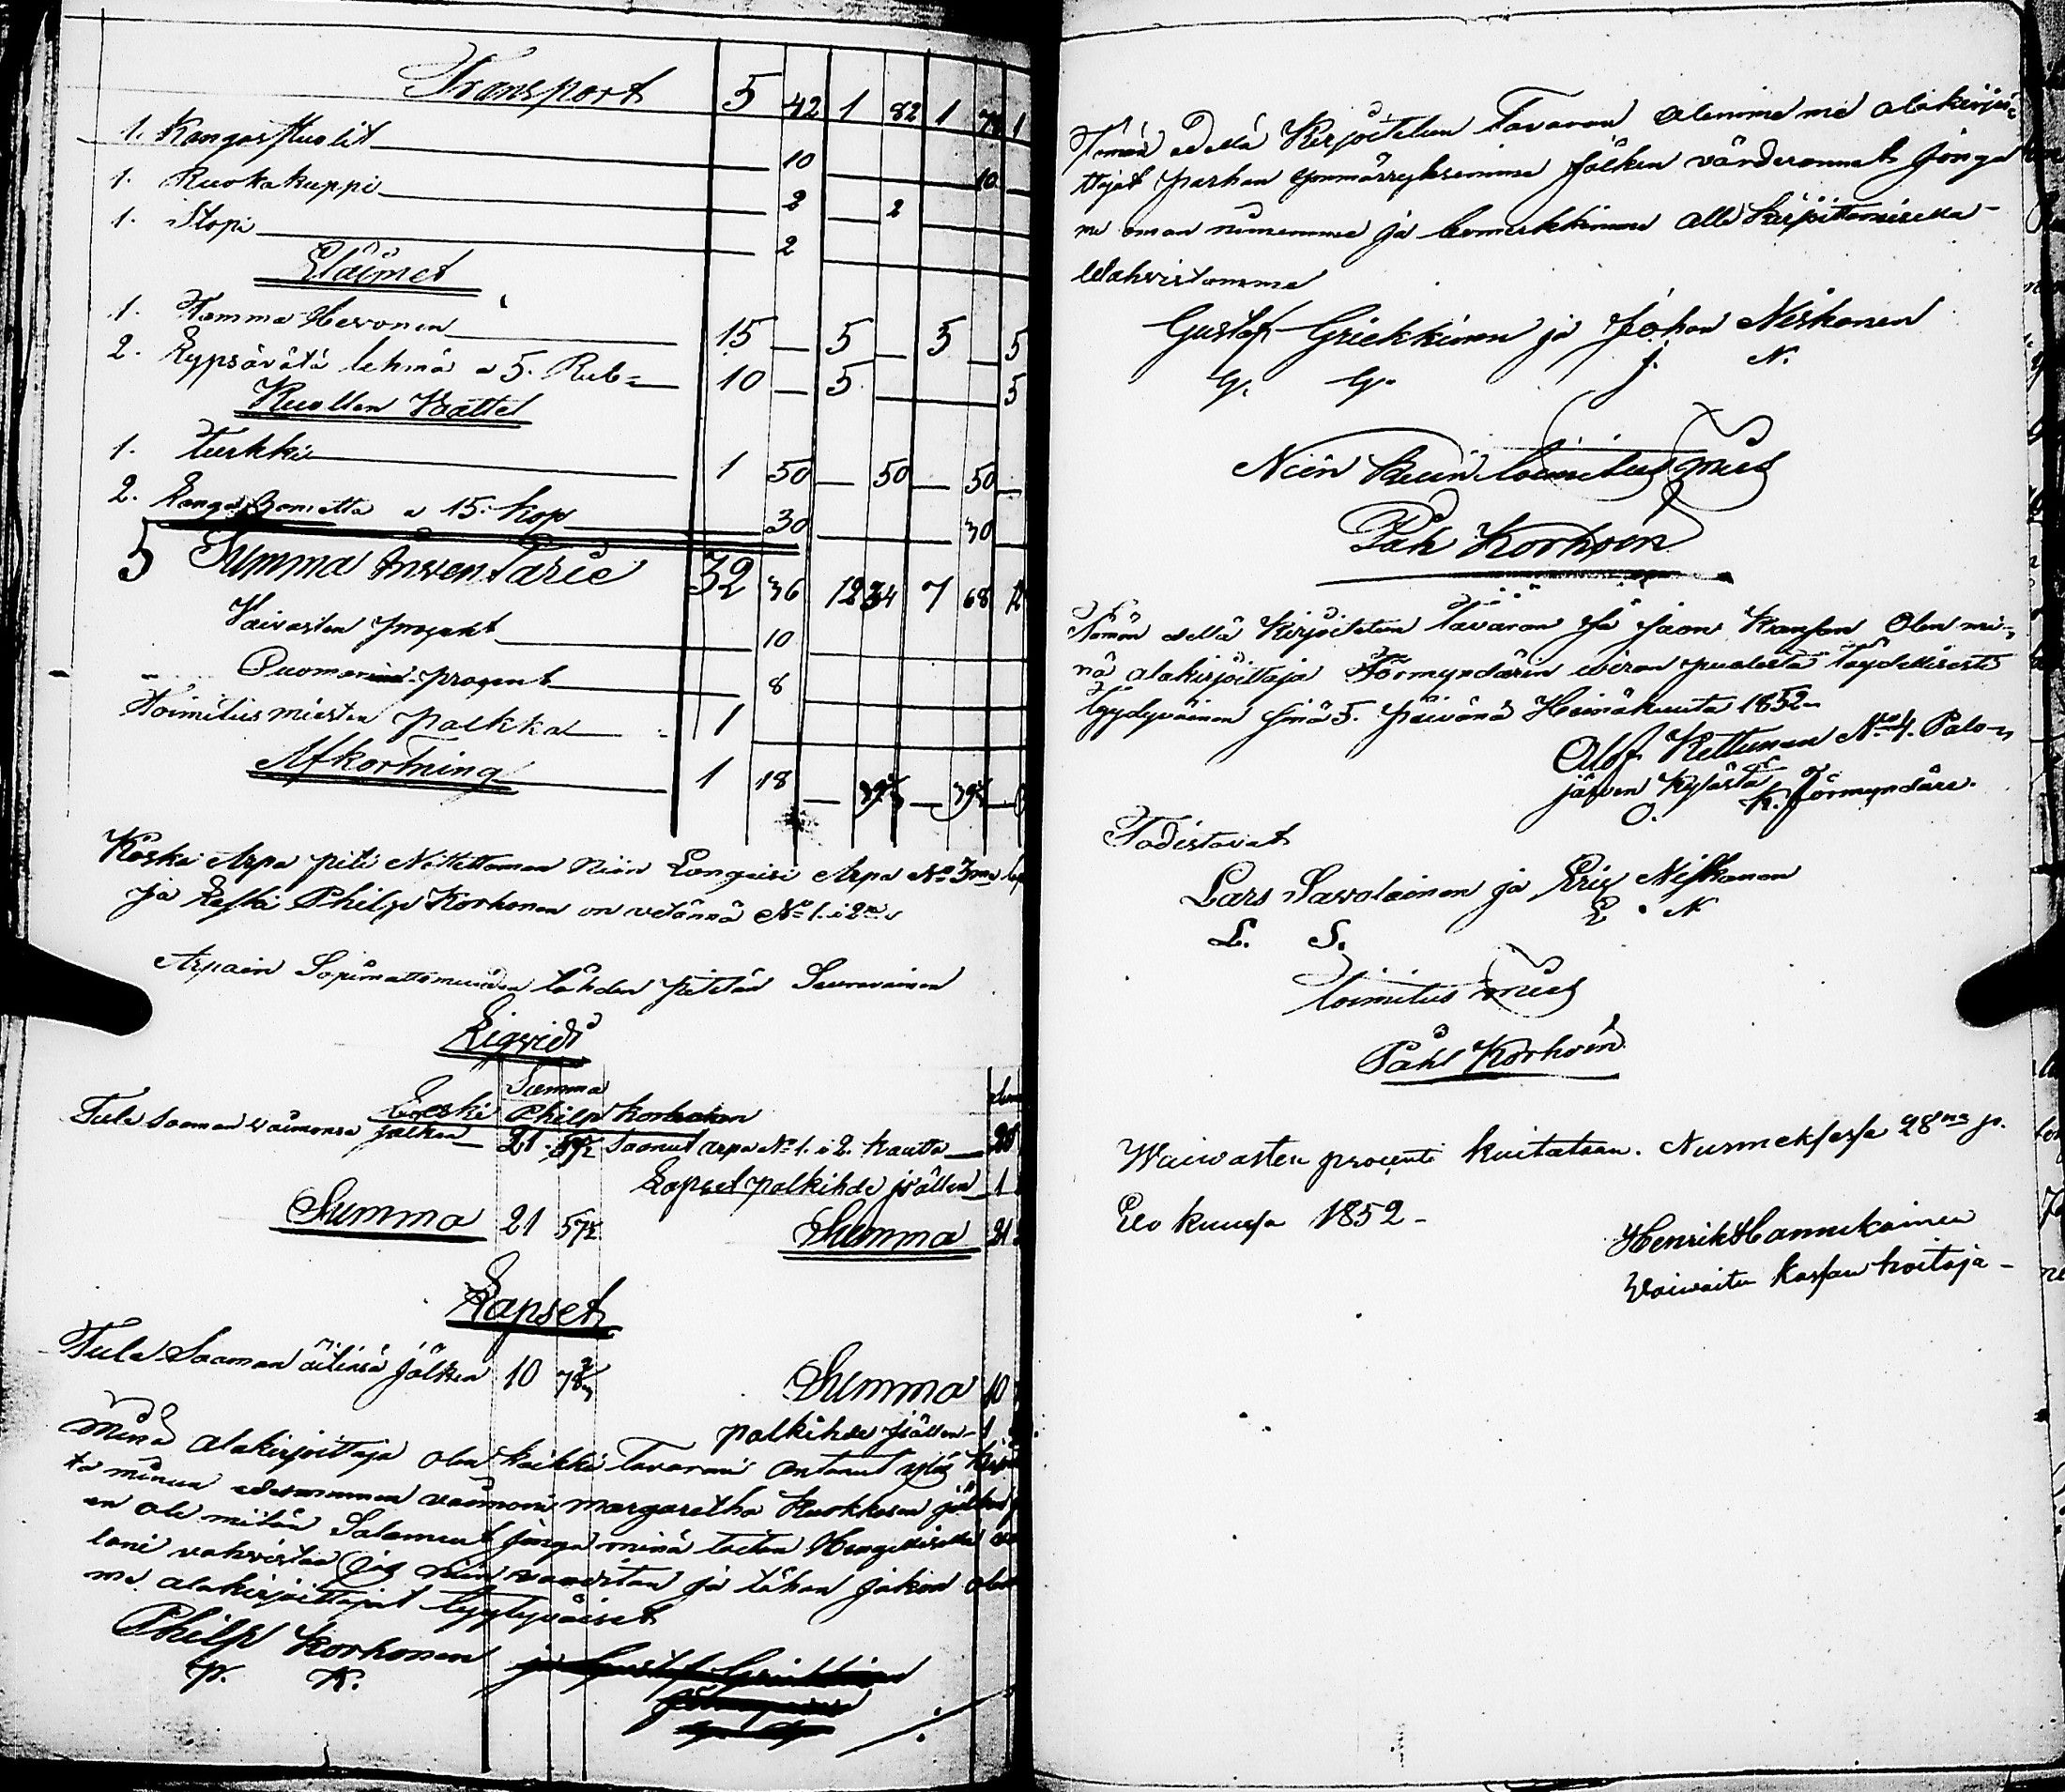 Transport 5 42 1 82 1 1
1. Kangas Puolit 10 10
1. Ruokakuppi 2 2
1. Stopi 2
Eläimet
1. Tamma Hevonen 15 5 5 5
2. Lypsävätä lehmä a 5. Rub 10 5 5
Kuollen Vaattet
1. Turkki 1 50 50 50
2. a 15. Kop 30 30
5 Summa Inventarie 32 36 12 34 7 68
Vaivasten prosent 10
Puomarin prosent 8
Toimitus miesten palkka 1
Afkortning 1 18
Koska Arpa piti Niin Arpa No 3
ja Leski Philip Korhonen on vetännä No 1. i 2
Arpain Sopimattomuuden tähden pitetän Seuravainen
Liqvidi
Summa
Leski Philip Korhonen
Tule saaman vaimonsa jälken 21 57½ Saanut arpa No 1. i 2. kautta
Lapset palkihde jällen 1
Summa 21 57½ Summa 21
Lapset
Tule Saaman äitinsä jälken 10 78 Summa 10
palkihde jällen 1
Minä alakirjoittaja olen kaikki Tavarani antanut ylös
ta minun edesmennen vaimoni Margaretha Kuokkasen jälken
en ole mitän Salannut jonga minä taitan Hengellisellä
lani vahvistaa jos niin vaaditan ja tähän jakon olem
me alakirjoittajat tyytyväiset
Philip Korhonen
P. K.
Tämän edellä Kirjoitetun Tavaran olemma me alakirjoi-
ttajat parhan ymmärryksemme jälken värderannet jonga
me oman nimemme ja bomerkkimme alla kirjoittamisella
Wahvistamme
Gustaf Griekkinen ja Johan Niskanen
G. G. J. N.
Niin kuin toimitus mies
Påhl Korhoin
Tämän edellä Kirjoitetun Tavaran ja jaon Kansan Olen mi-
nä alakirjoittaja Förmyndärin viran puolesta Täydellisesti
tyydyväinen sinä 5. päivänä Heinäkuuta 1852
Olof Kettunen No 4. Palo-
järven kylästä
O. K. Förmyndäre.
Todistavat
Lars Savolainen ja Eric Niskanen
L. S. E. N
toimitus mies
Påhl Korhoin
Waivasten procenti kuitataan. Nurmeksessa 28 p.
Elo kuussa 1852
Henrik Hannukainen
Vaivaisten kassan hoitaja